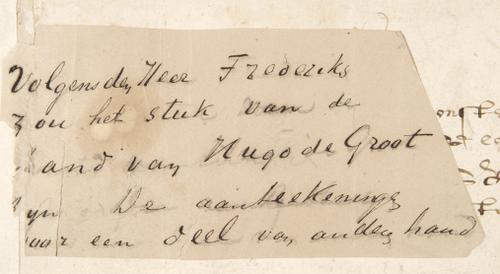 Volgens den Heer Frederiks
zou het stuk van de
hand van Hugo de Groot
zijn De aanteekeningen
voor een deel van andere hand